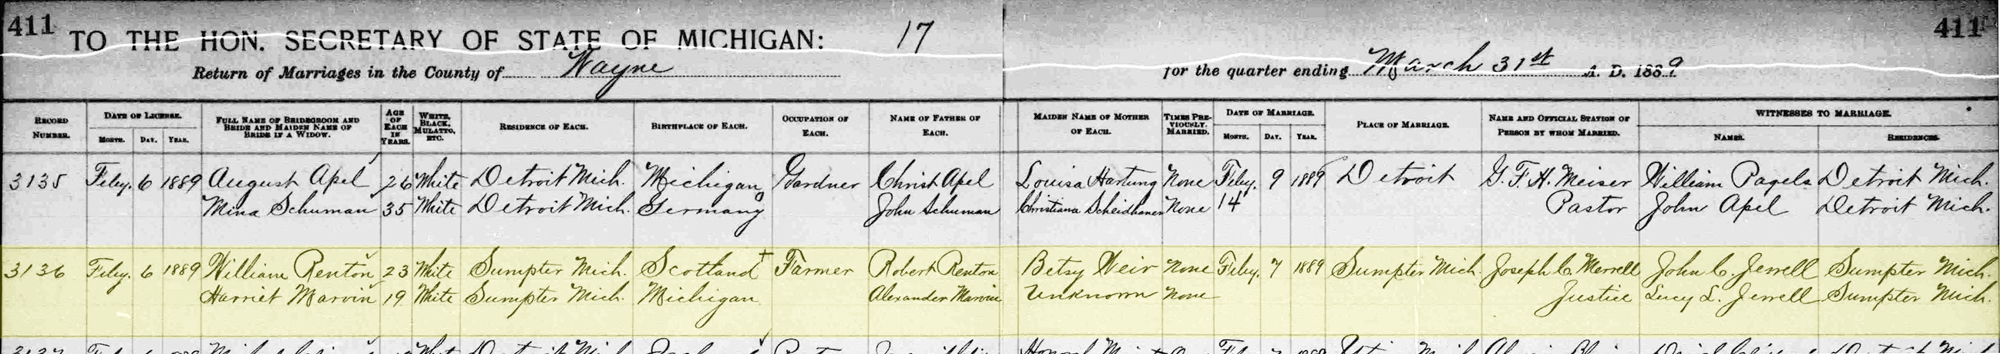 411 TO THE HON. SECRETARY OF STATE OF MICHIGAN: 17 411
Return of Marriages in the County of Wayne for the quarter ending March 31st A. D. 1889
RECORD NUMBER. DATE OF LICENSE. MONTH. DAY. YEAR. FULL NAME OF BRIDEGROOM AND BRIDE AND MAIDEN NAME OF BRIDE IF A WIDOW. AGE OF EACH IN YEARS. WHITE, BLACK, MULATTO, ETC. RESIDENCE OF EACH. BIRTHPLACE OF EACH. OCCUPATION OF EACH. NAME OF FATHER OF EACH. MAIDEN NAME OF MOTHER OF EACH. TIMES PREVIOUSLY MARRIED. DATE OF MARRIAGE. MONTH. DAY. YEAR. PLACE OF MARRIAGE. NAME AND OFFICIAL STATION OF PERSON BY WHOM MARRIED. WITNESSES TO MARRIAGE. NAMES. RESIDENCES.
3135 Feby. 6 1889 August Apel 26 White Detroit Mich. Michigan Gardner Christ Apel Louisa Hartung None Feby. 9 1889 Detroit G. F. H. Meiser William Pagels Detroit Mich.
Mina Schuman 35 White Detroit Mich. Germany John Schuman Christiana None 14 Pastor John Apel Detroit Mich.
3136 Feby. 6 1889 William Renton 23 White Sumpter Mich. Scotland Farmer Robert Renton Betsy Weir None Feby. 7 1889 Sumpter Mich Joseph C Merrell John C. Jewell Sumpter Mich.
Harriet Marvin 19 White Sumpter Mich. Michigan Alexander Marvin Unknown None Justice Lucy L. Jewell Sumpter Mich.
3137